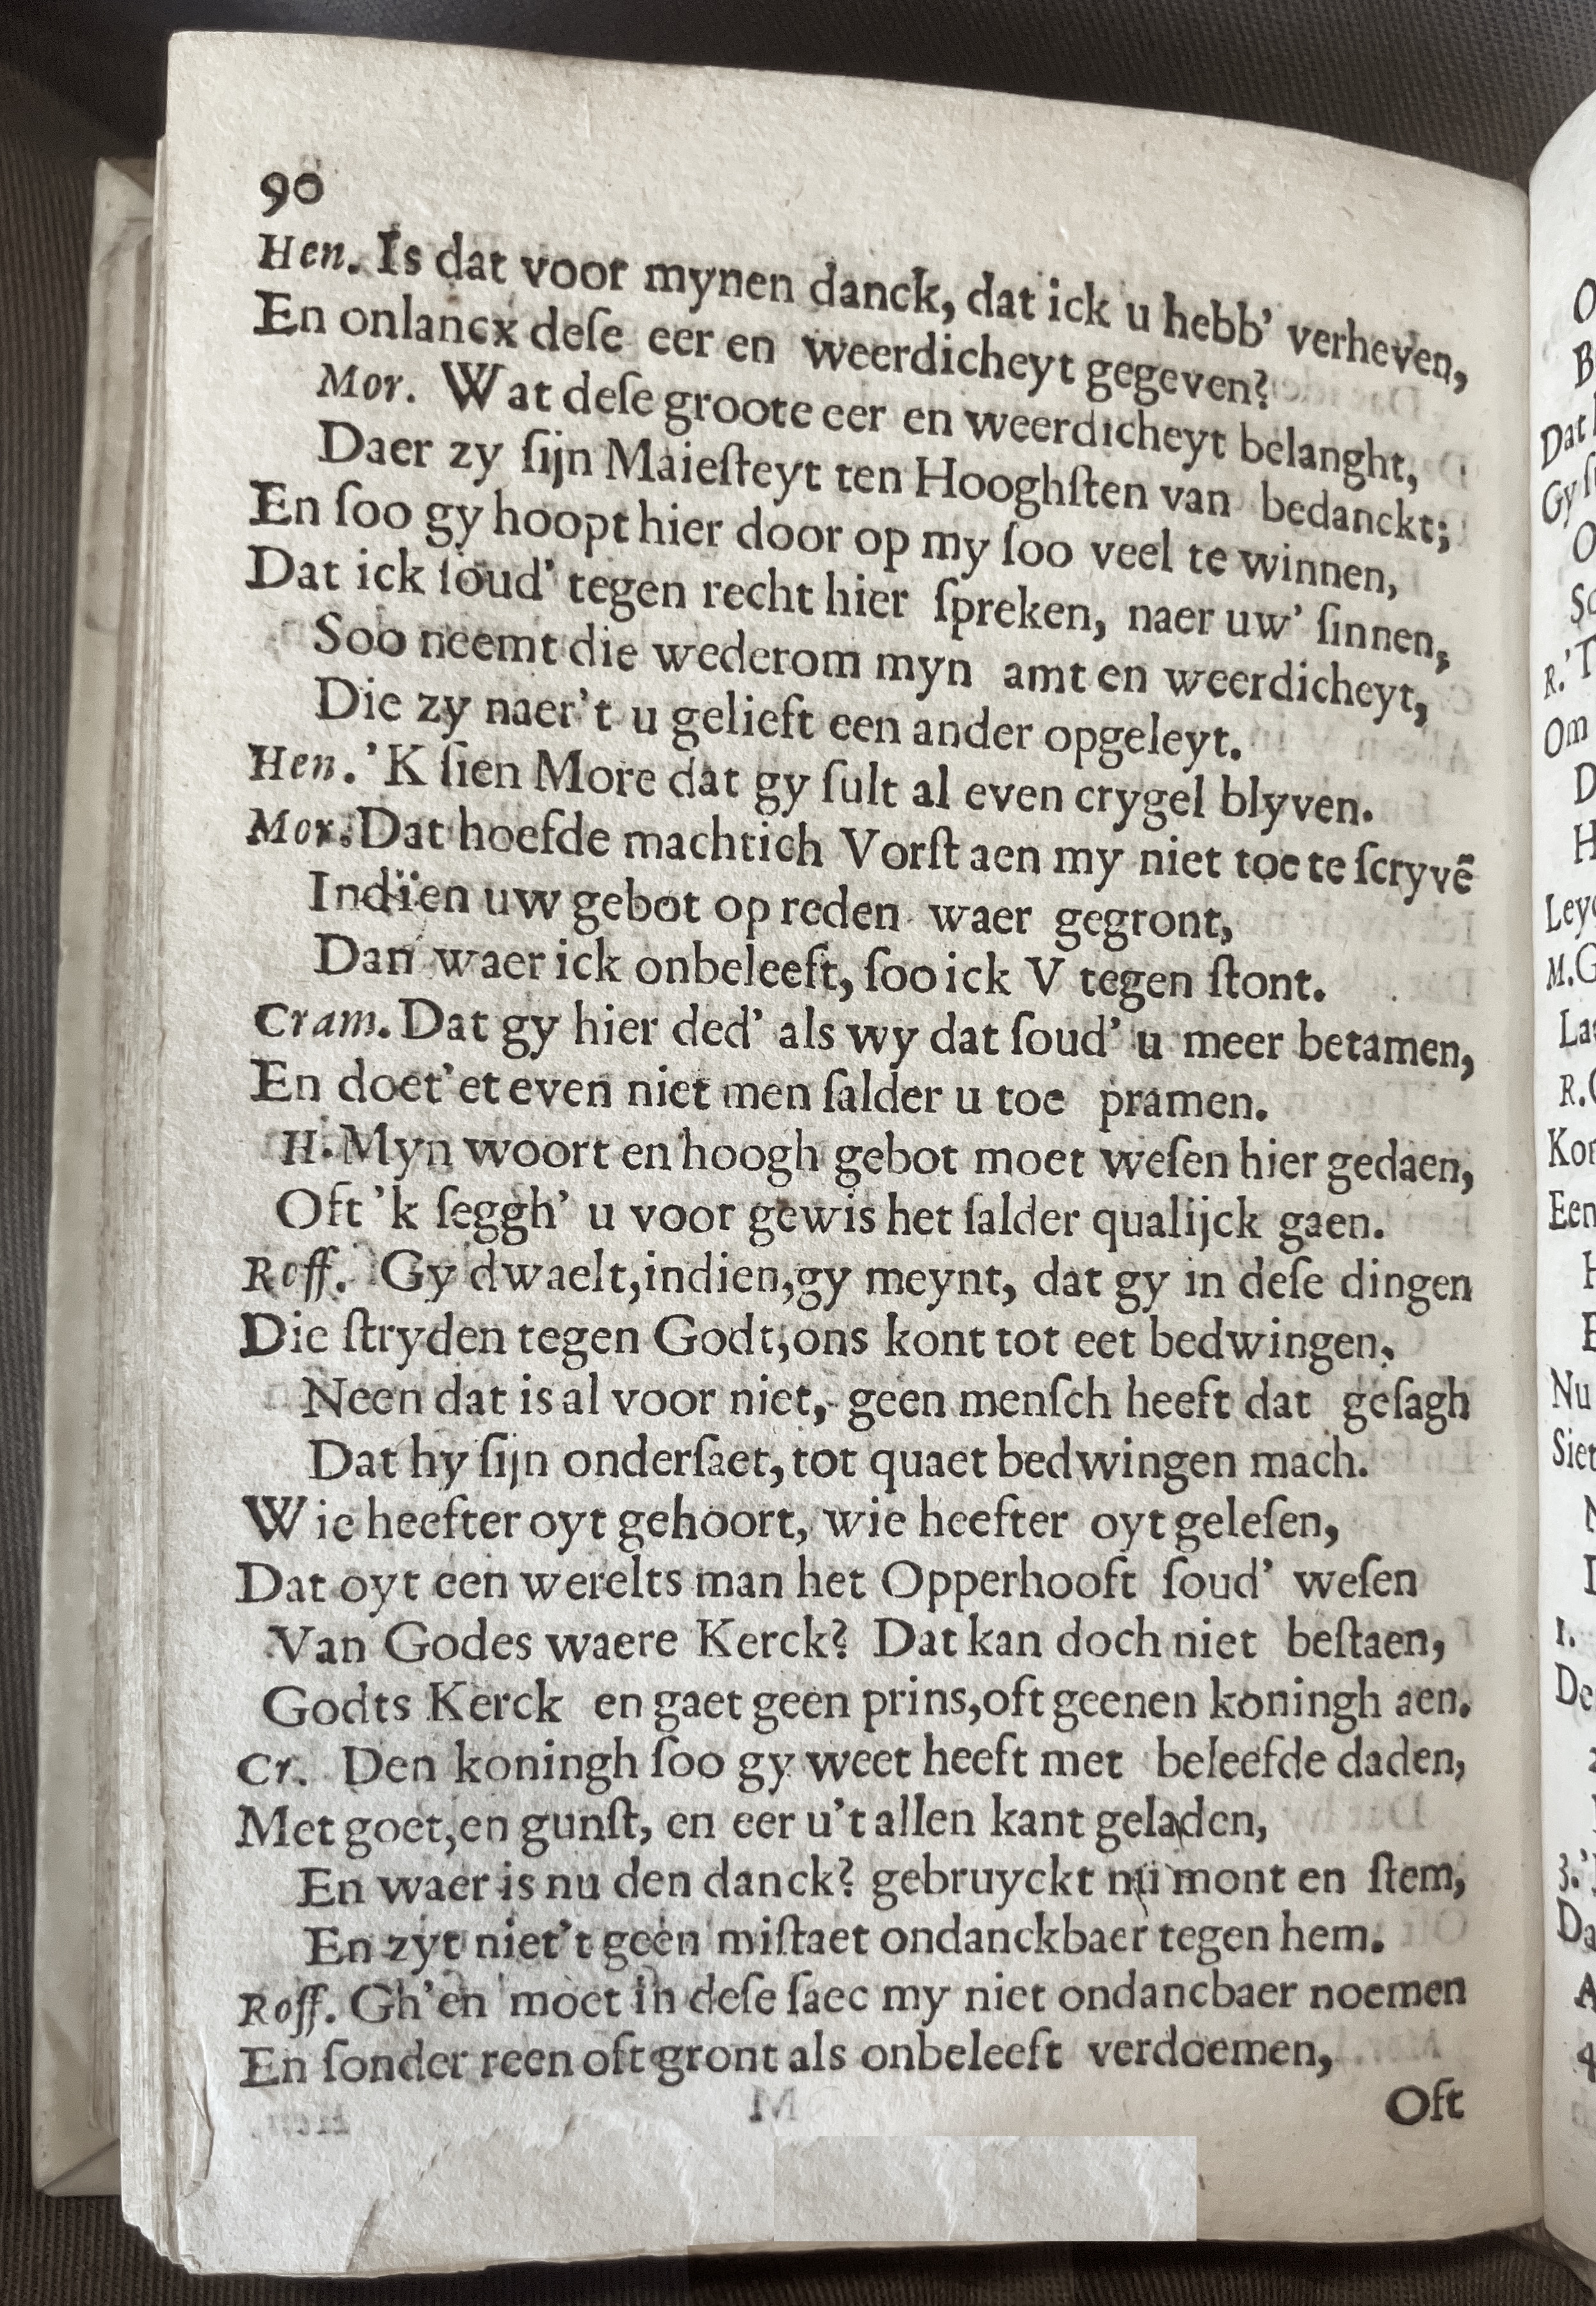 90
Hen. Is dat voor mynen danck, dat ick u hebb' verheven,
En onlancx deſe eer en weerdicheyt gegeven?
Mor. Wat deſe groote eer en weerdicheyt belanght,
Daer zy ſijn Maieſteyt ten Hooghſten van bedanckt;
En ſoo gy hoopt hier door op my ſoo veel te winnen,
Dat ick ſoud' tegen recht hier ſpreken, naer uw' ſinnen,
Soo neemt die wederom myn amt en weerdicheyt,
Die zy naer't u gelieft een ander opgeleyt.
Hen. 'K ſien More dat gy ſult al even crygel blyven.
Mor. Dat hoefde machtich Vorſt aen my niet toe te ſcryvē
Indien uw gebot op reden waer gegront,
Dan waer ick onbeleeft, ſoo ick V tegen ſtont.
Cram. Dat gy hier ded' als wy dat ſoud' u meer betamen,
En doet'et even niet men ſalder u toe pramen.
H. Myn woort en hoogh gebot moet weſen hier gedaen,
Oft 'k ſeggh' u voor gewis het ſalder qualijck gaen.
Roff. Gy dwaelt, indien, gy meynt, dat gy in deſe dingen
Die ſtryden tegen Godt, ons kont tot eet bedwingen,
Neen dat is al voor niet, geen menſch heeft dat geſagh
Dat hy ſijn onderſaet, tot quaet bedwingen mach.
Wie heefter oyt gehoort, wie heefter oyt geleſen,
Dat oyt een werelts man het Opperhooft ſoud' weſen
Van Godes waere Kerck? Dat kan doch niet beſtaen,
Godts Kerck en gaet geen prins, oft geenen koningh aen.
Cr. Den koningh ſoo gy weet heeft met beleefde daden,
Met goet, en gunſt, en eer u't allen kant geladen,
En waer is nu den danck? gebruyckt nu mont en ſtem,
En zyt niet't geen miſtaet ondanckbaer tegen hem.
Roff. Gh'en moet in deſe ſaec my niet ondancbaer noemen
En ſonder reen oft gront als onbeleeft verdoemen,
Oft
O
B
Dat
Gy
O
R.'T
Om
D
H
Ley
M.G
La
R.
Kor
Een
H
E
Nu
Siet
N
1.
De
3.
Da
A
4